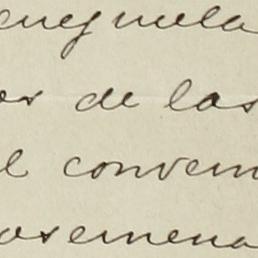 enezuela
os de las
l conven
osemena